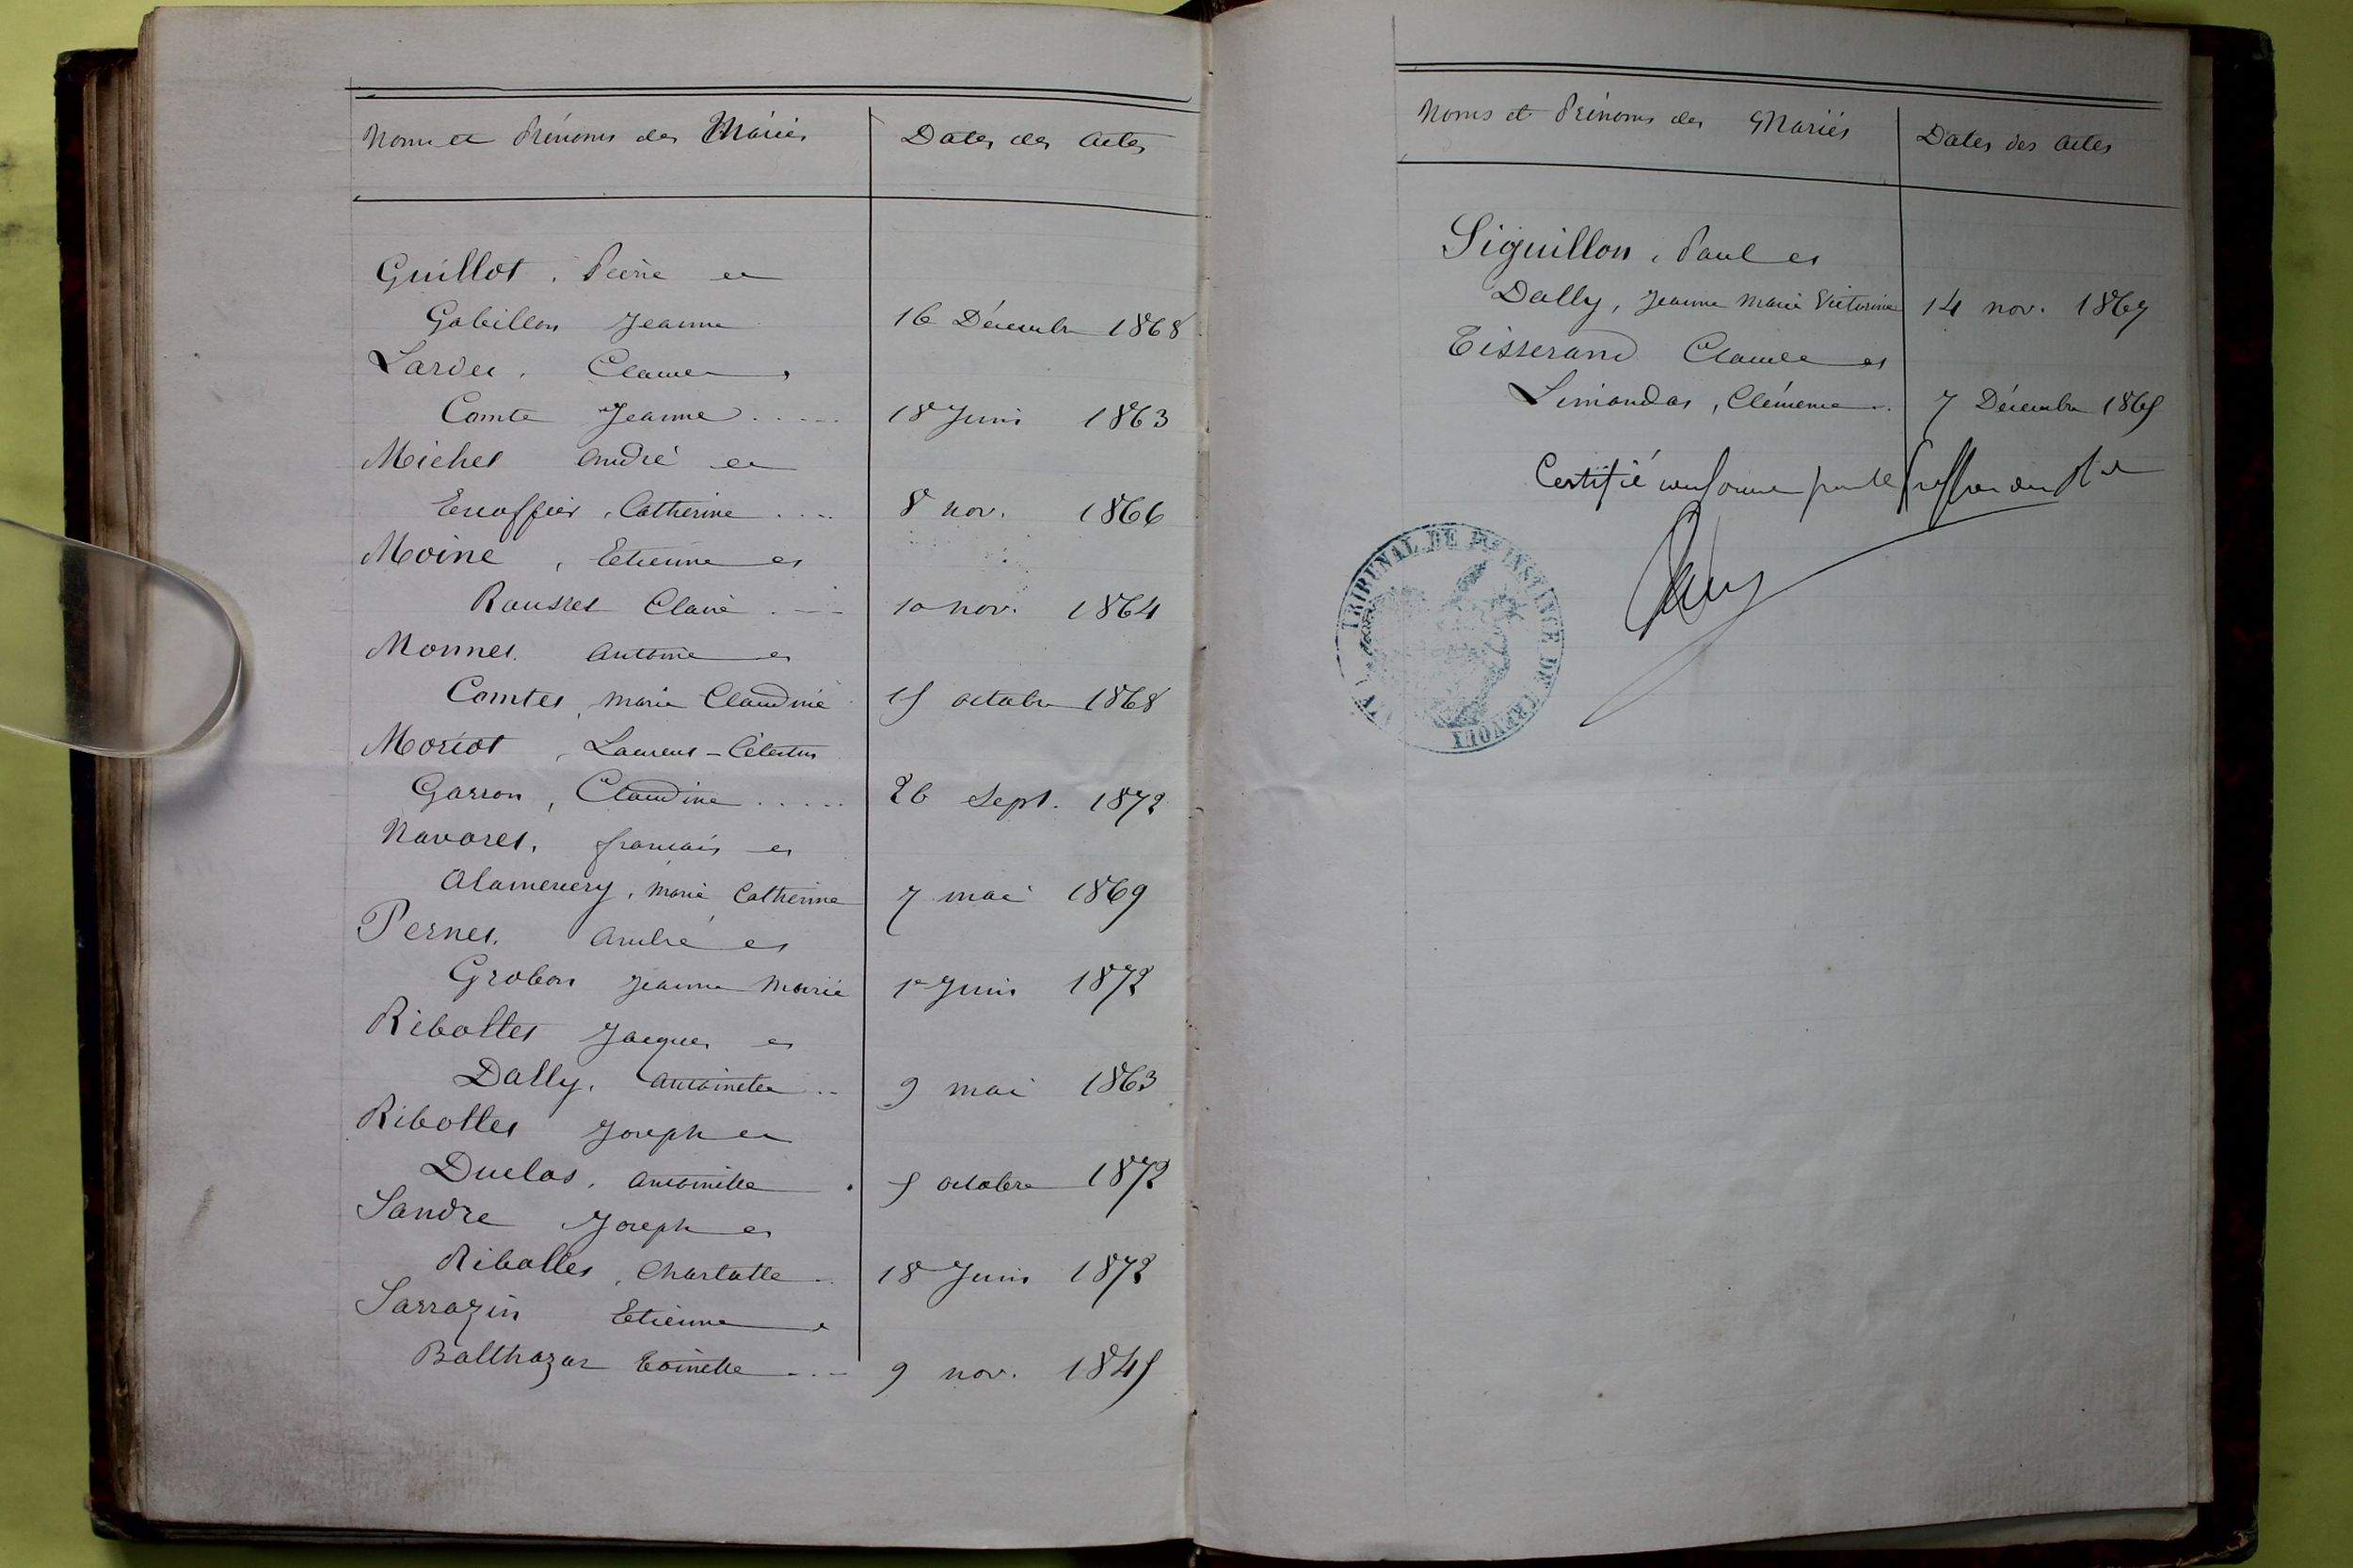 Noms et Prénoms des Mariés
Dates des Actes
Guillot, Pierre et
Gobillon Jeanne
16 Décembre 1868
Lardet, Claude et
Comte Jeanne
18 Juin 1863
Michel André et
Escoffier, Catherine
8 nov. 1866
Moine, Etienne et
Rousset Claire
10 nov. 1864
Monnet Antoine et
Comtet, Marie Claudine
15 octobre 1868
Moriot, Laurent-Célestin
Garron, Claudine
26 Sept. 1872
Navoret, françois et
Alamercery, Marie Catherine
7 mai 1869
Pernet, André et
Grobon Jeanne Marie
1e Juin 1872
Ribollet Jacques et
Dally, Antoinette
9 mai 1863
Ribollet Joseph et
Duclos, Antoinette
5 octobre 1872
Sandre Joseph et
Ribollet, Charlotte
18 Juin 1872
Sarrazin Etienne et
Balthazar Toinette
9 nov. 1845
Noms et Prénoms des Mariés
Dates des Actes
Siguillon, Paul et
Dally, Jeanne Marie Victorine
14 nov. 1867
Tisserand Claude et
Limandas, Clémence
7 Décembre 1865
Certifié conforme par le Greffier
TRIBUNAL DE PRE INSTANCE DE TREVOUX